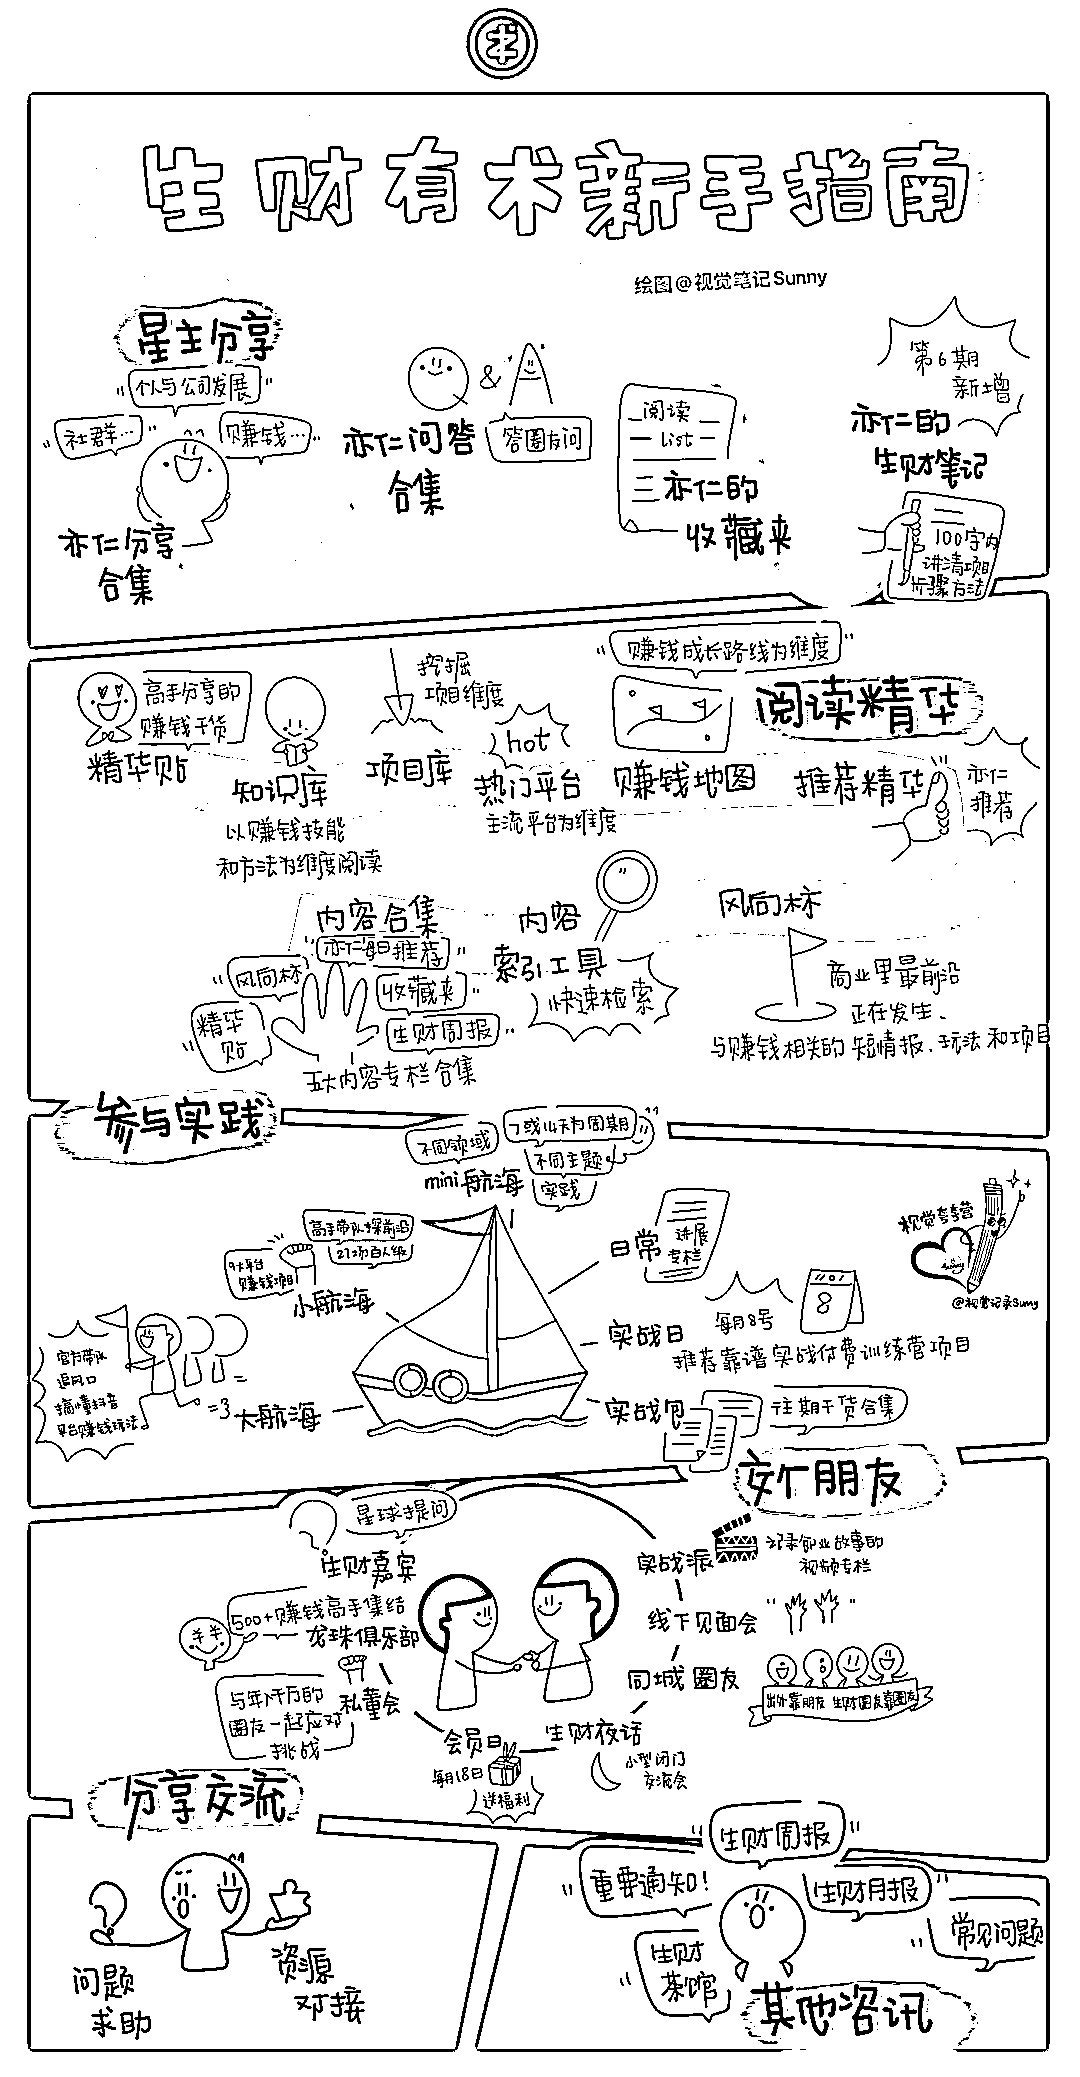 生财有术新手指南
绘图@视觉笔记Sunny
星主分享
个人与公司发展
社群…
赚钱…
亦仁分享
合集
Q & A
亦仁问答
合集
答圈友问
阅读
list
亦仁的
收藏夹
第6期
新增
亦仁的
生财笔记
100字内
讲清项目
步骤方法
阅读精华
高手分享的
赚钱干货
精华贴
知识库
以赚钱技能
和方法为维度阅读
挖掘
项目维度
项目库
hot
热门平台
主流平台为维度
赚钱成长路线为维度
赚钱地图
推荐精华
亦仁
推荐
内容合集
亦仁每日推荐
风向标
收藏夹
精华
贴
生财周报
五大内容专栏合集
内容
索引工具
快速检索
风向标
商业里最前沿
正在发生、
与赚钱相关的短情报、玩法和项目
参与实践
不同领域
7或14天为周期
不同主题
实践
mini航海
高手带队探前沿
21场百人级
平台
赚钱项目
小航海
官方带队
追风口
搞懂抖音
平台赚钱玩法
大航海
日常
进展
专栏
实战日
每月8号
8
推荐靠谱实战付费训练营项目
实战包
往期干货合集
视觉夸夸营
Sunny
@视觉记录Sunny
交个朋友
星球提问
生财嘉宾
500+赚钱高手集结
龙珠俱乐部
与年入千万的
圈友一起应对
挑战
私董会
会员日
每月18日
送福利
生财夜话
小型闭门
交流会
同城圈友
出外靠朋友 生财圈友靠圈友
线下见面会
实战派
记录创业故事的
视频专栏
分享交流
问题
求助
资源
对接
生财周报
重要通知！
生财月报
常见问题
生财
茶馆
其他咨讯